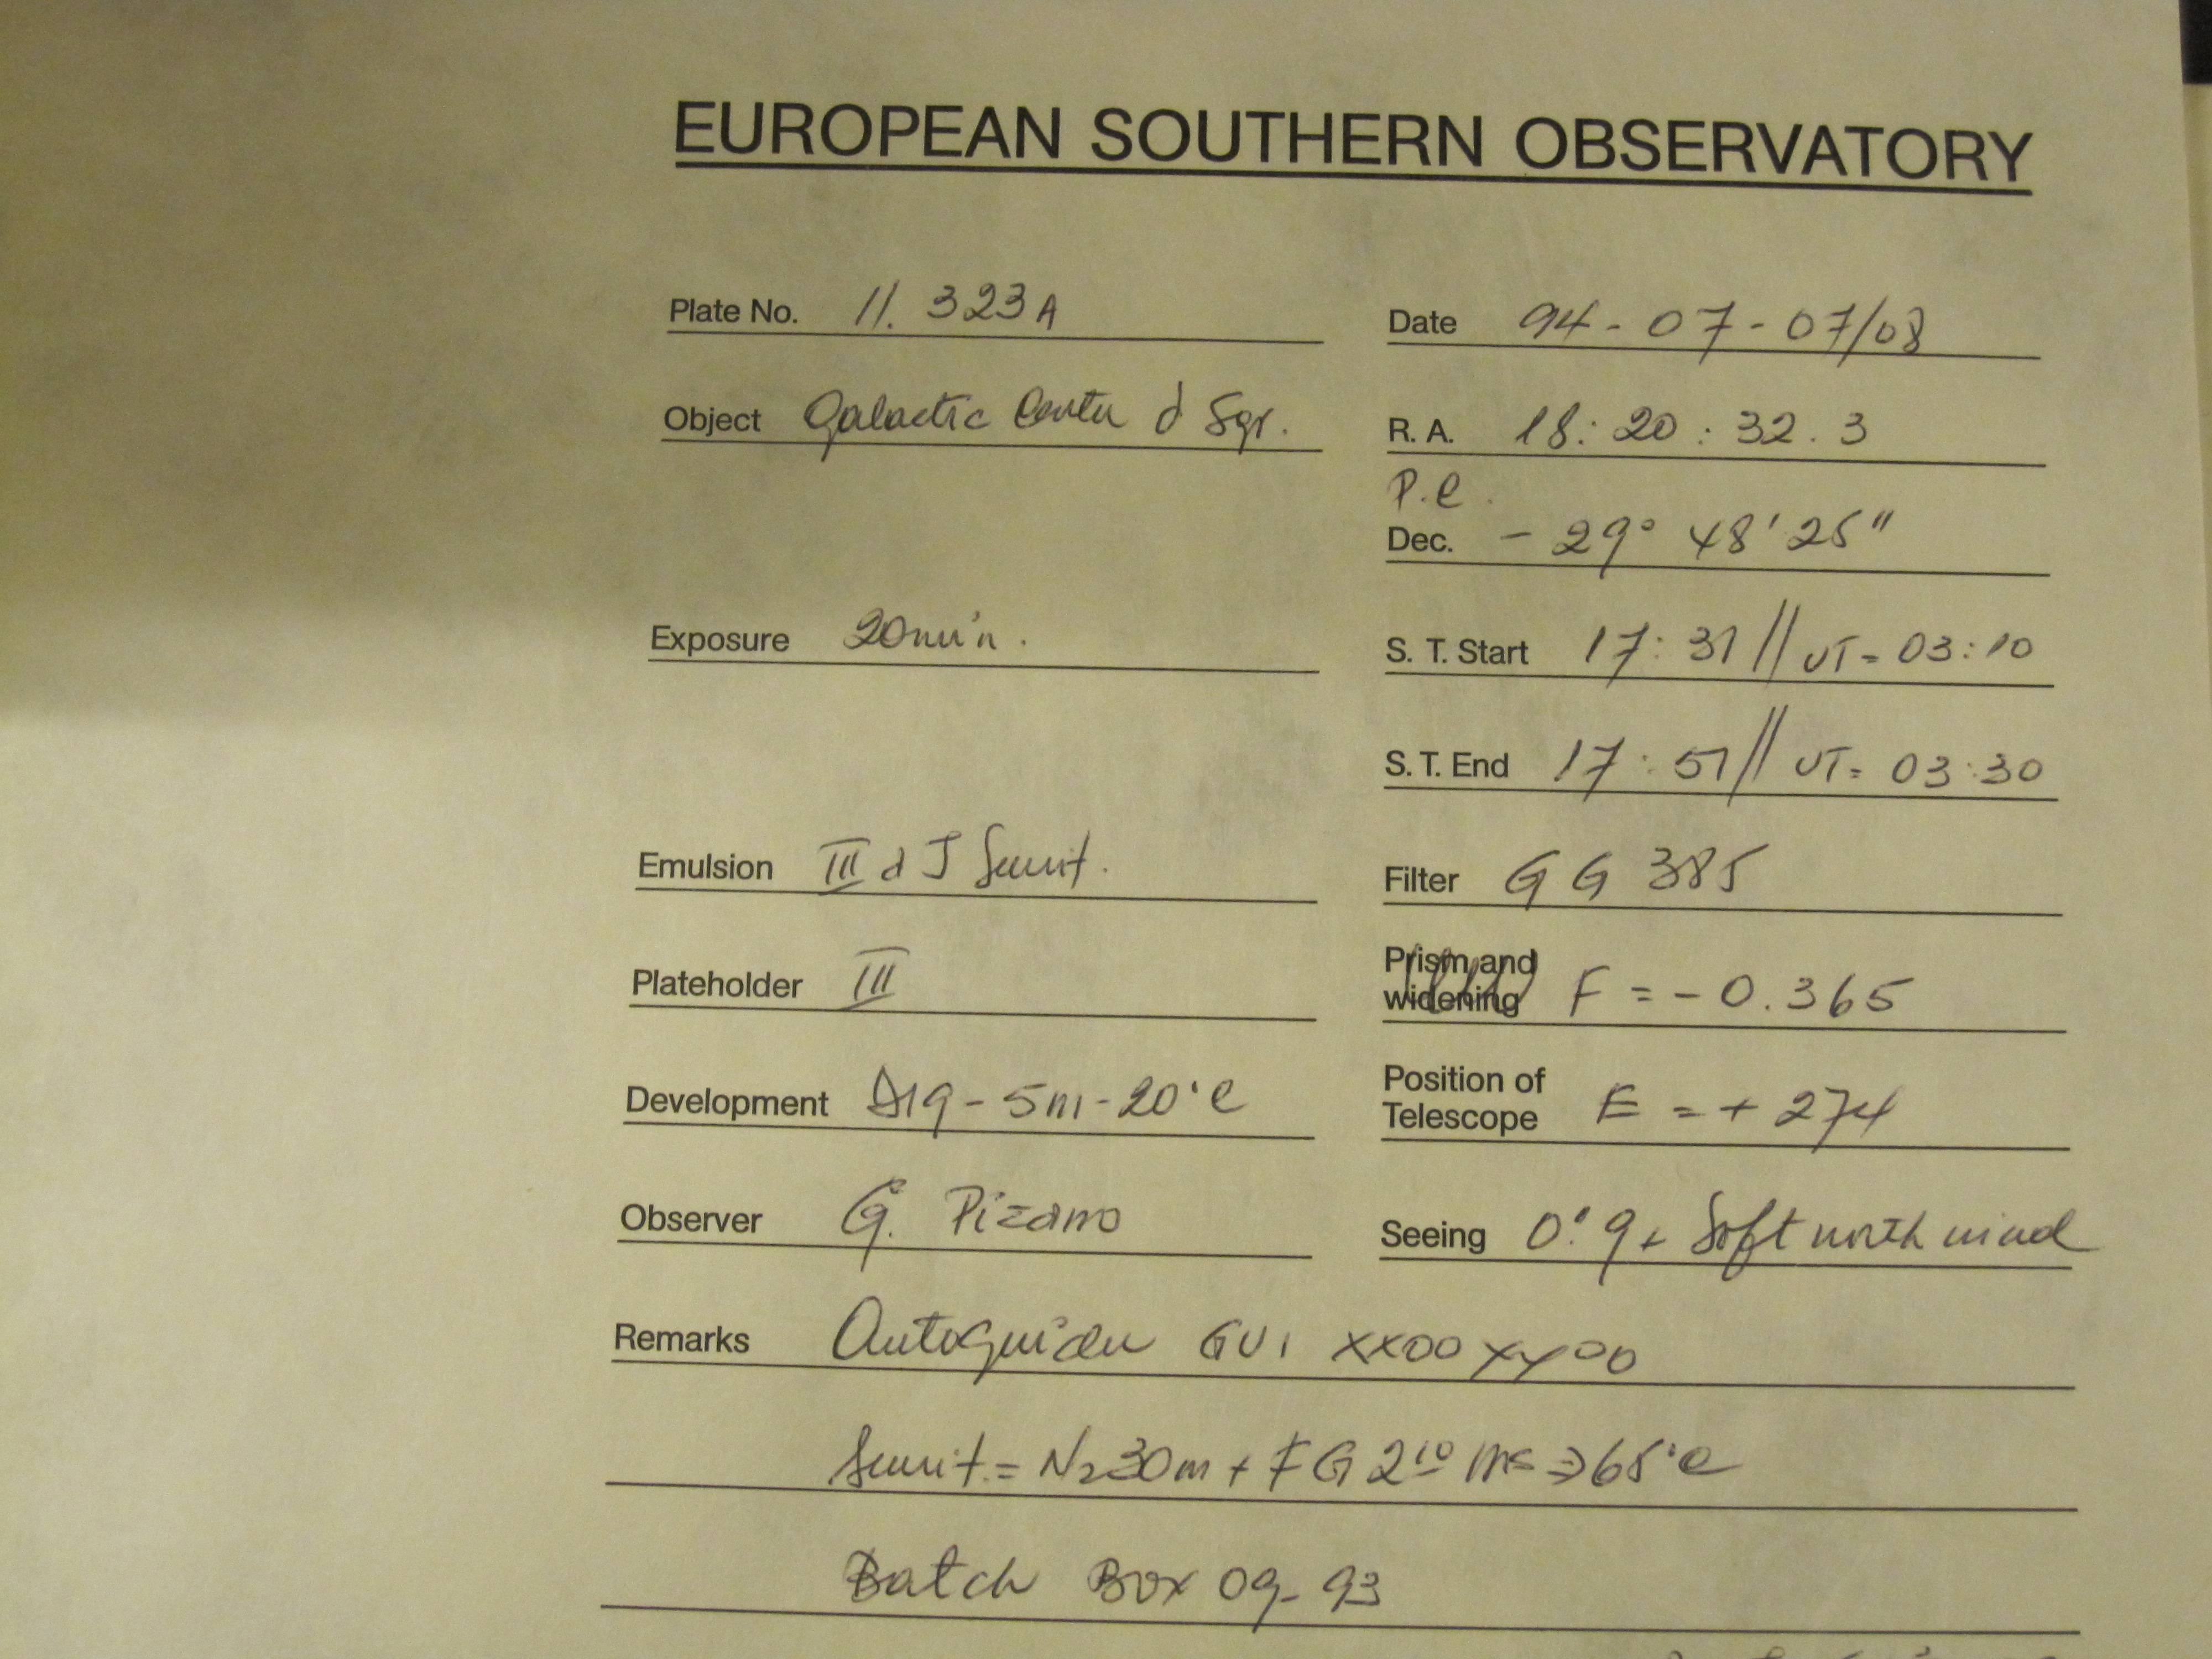 EUROPEAN SOUTHERN OBSERVATORY
Plate No. 11. 323A
Date 94-07-07/08
Object Galactic Center d Sgr.
R. A. 18: 20 : 32. 3
P.e.
Dec. - 29° 48' 25"
Exposure 20min.
S. T. Start 17: 31 // UT= 03:10
S. T. End 17: 51 // UT= 03:30
Emulsion III a J
Filter GG 385
Plateholder III
Prism and
widening F = - 0.365
Development D19 - 5m - 20°C
Position of
Telescope E = + 274
Observer G. Pizarro
Seeing 0".9 + Soft north wind
Remarks Autoguider GU1 XX00 YY00
= N2 30m + FG 2 10 => 65°C
Batch Box 09-93